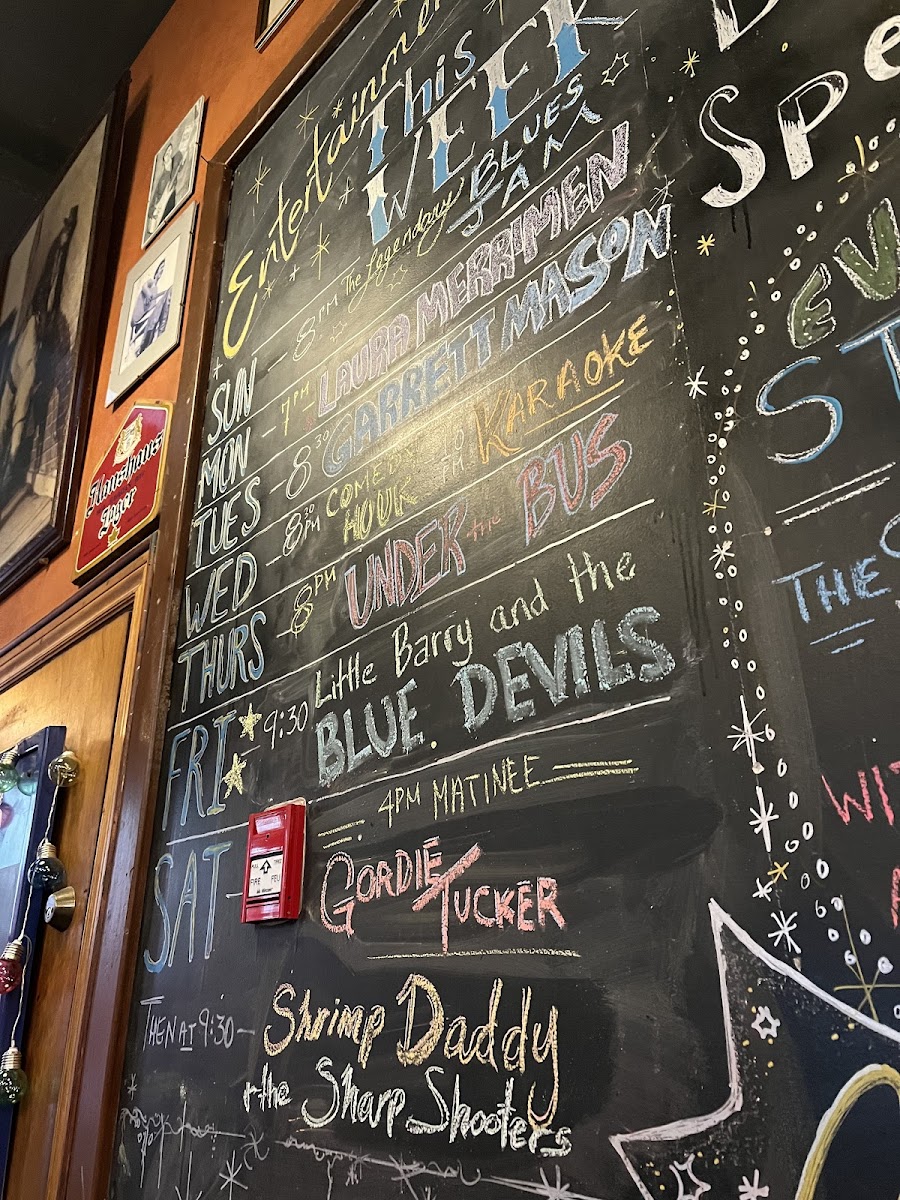 Entertainment
This
WEEK
SUN - 8PM The Legendary BLUES
JAM
MON - 7PM LAURA MERRIMEN
TUES - 8³⁰ GARRETT MASON
WED - 8³⁰PM COMEDY
HOUR KARAOKE
THURS - 8PM UNDER the BUS
FRI - 9:30 Little Barry and the
BLUE DEVILS
4PM MATINEE
SAT - GORDIE
TUCKER
THEN AT 9:30 - Shrimp Daddy
& the Sharp Shooters
Lager
FIRE FEU
THE